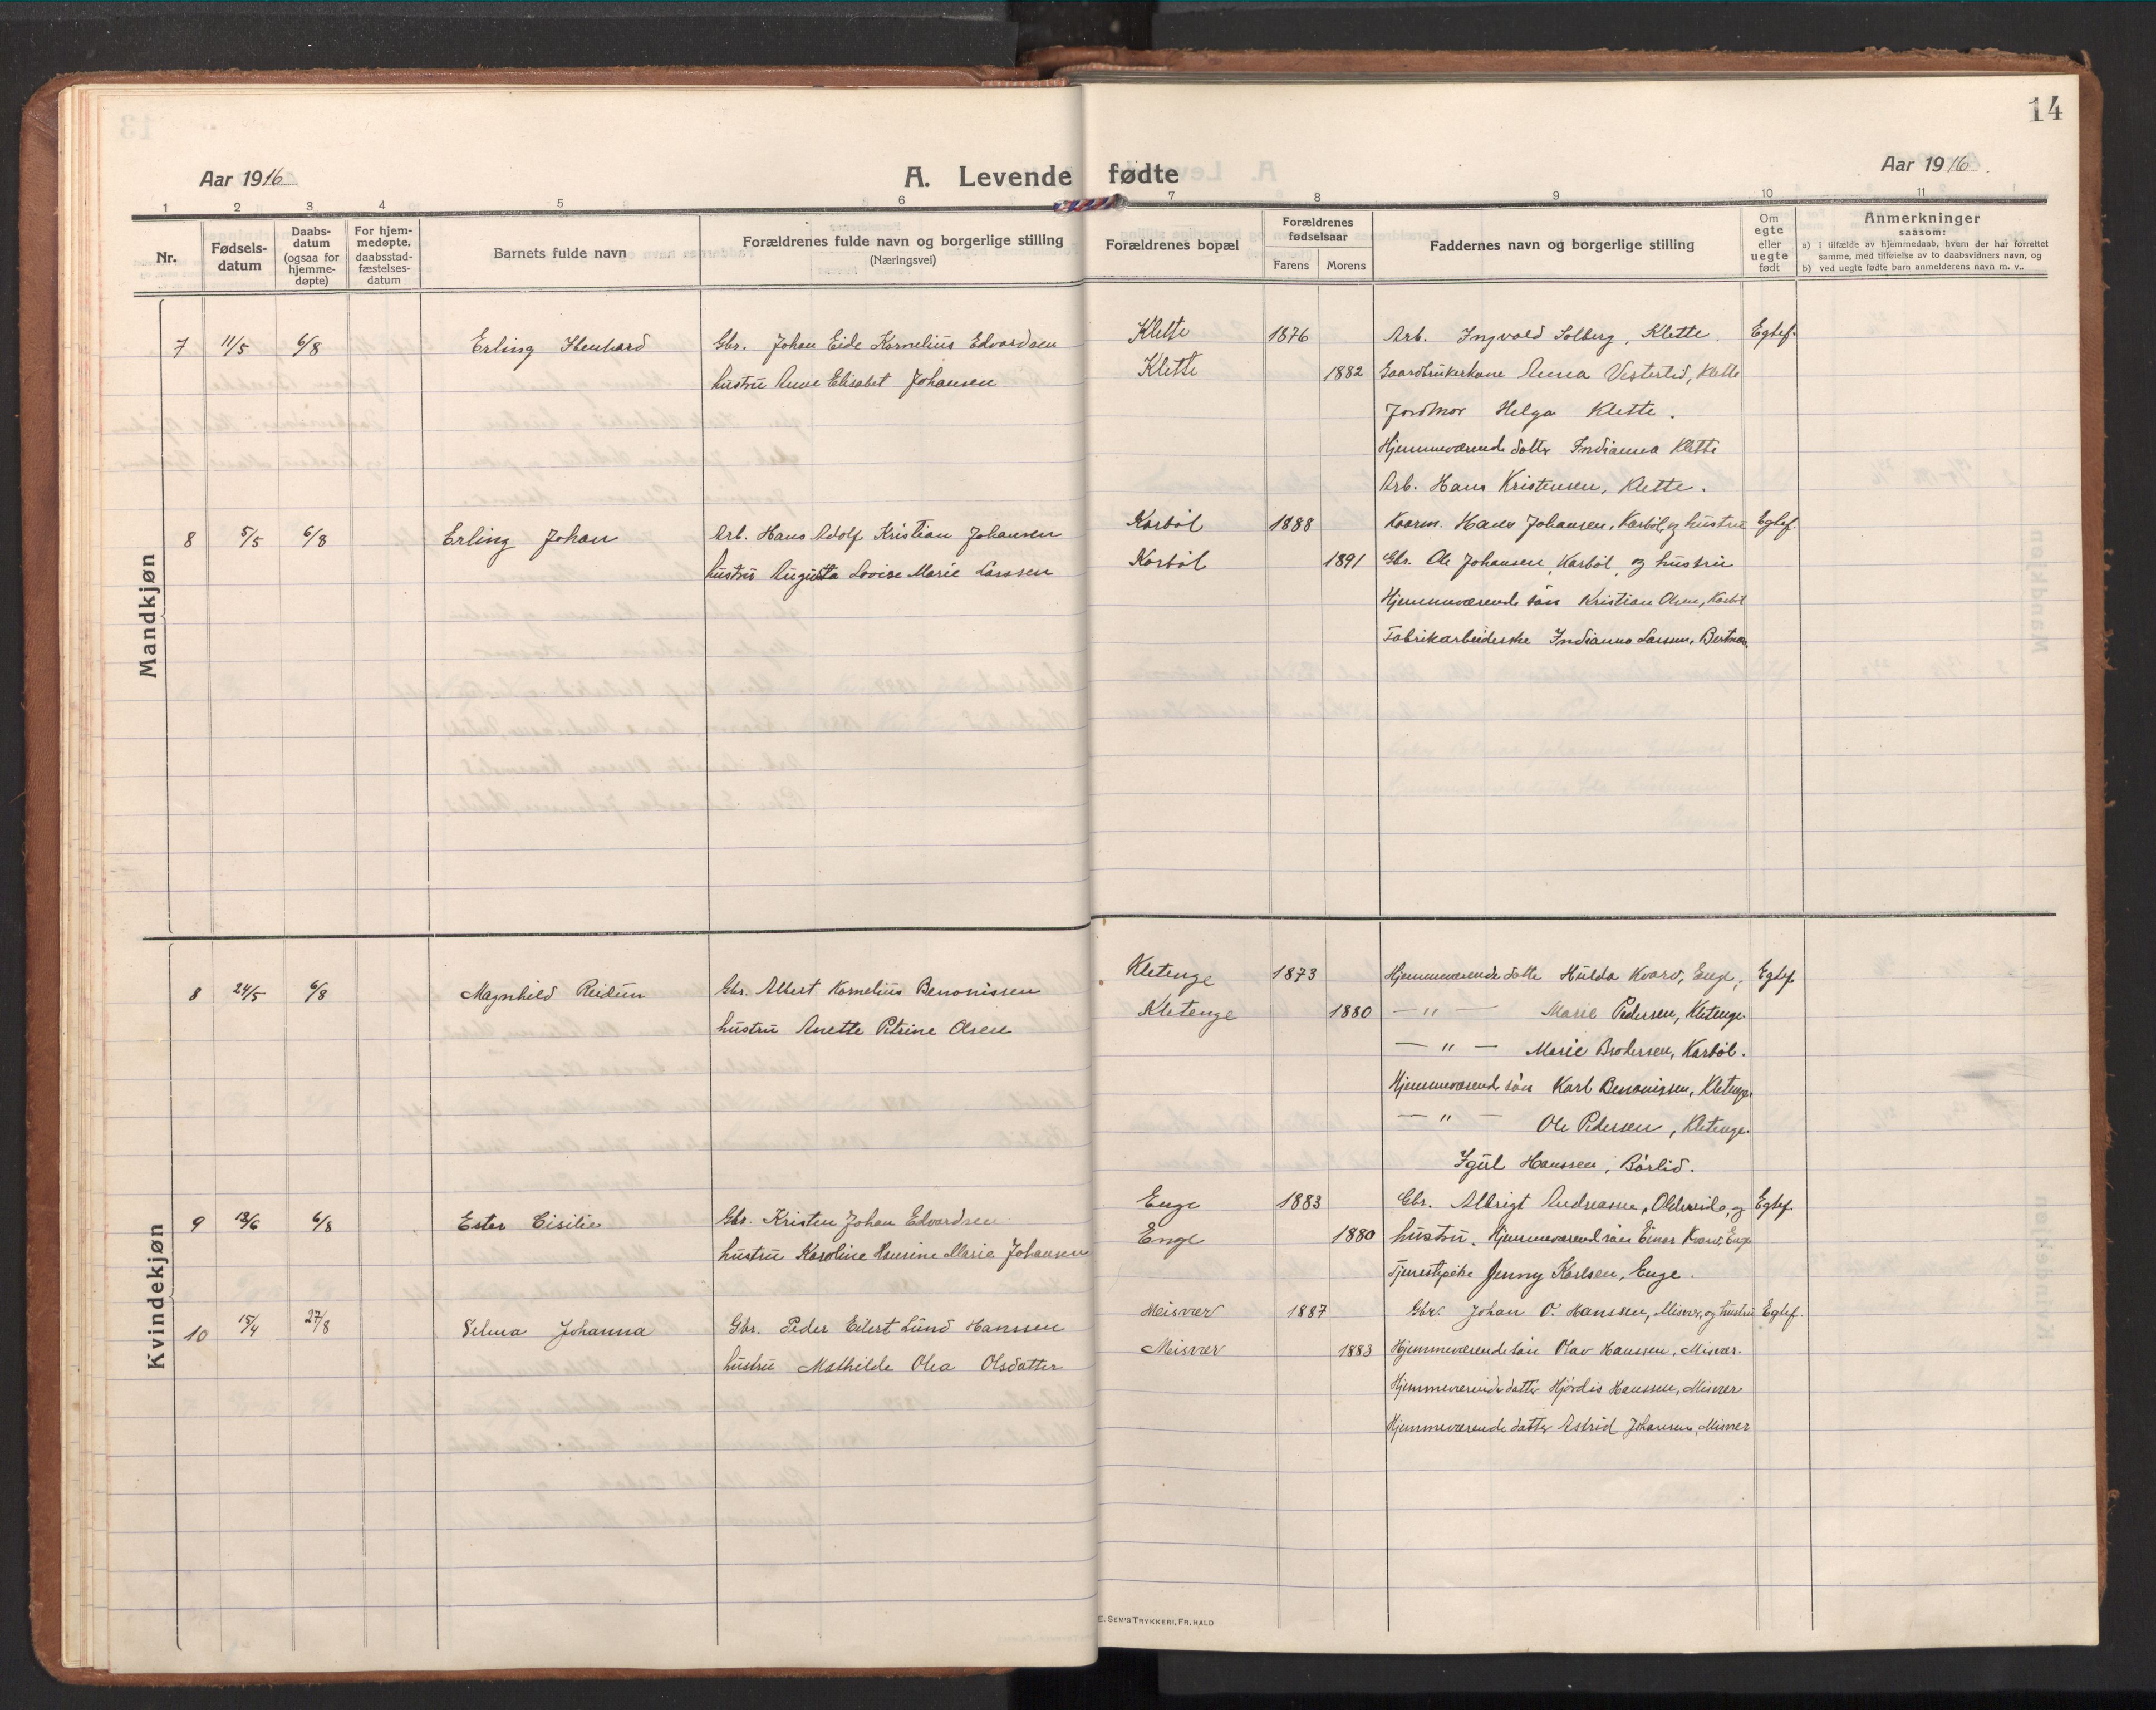 14
Aar 1916
A. Levende fødte
Aar 1916.
1 2 3 4 5 6 7 8 9 10 11
Nr.
Fødsels-
datum
Daabs-
datum
(ogsaa for
hjemme-
døpte)
For hjem-
medøpte,
daabsstad-
fæstelses-
datum
Barnets fulde navn
Forældrenes fulde navn og borgerlige stilling
(Næringsvei)
Forældrenes bopæl
Forældrenes
fødselsaar
Farens Morens
Faddernes navn og borgerlige stilling
Om
egte
eller
uegte
født
Anmerkninger
saasom:
a) i tilfælde av hjemmedaab, hvem der har forrettet
samme, med tilføielse av to daabsvidners navn, og
b) ved uegte fødte barn anmelderens navn m. v..
Mandkjøn
7 11/5 6/8 Erling Gbr. Johan Eide Kornelius Edvardsen Klette 1876 Arb. Ingvald Solberg, Klette. Egtef.
hustru Anne Elisabet Johansen Klette 1882 Gaardbrukerkone Anna Vesterlid, Klette
Jordmor Helga Klette.
Hjemmeværende datter Indianna Klette
Arb. Hans Kristensen, Klette.
8 5/5 6/8 Erling Johan Arb. Hans Adolf Kristian Johansen Karbøl 1888 Kaarm. Hans Johansen, Karbøl, og hustru Egtef.
hustru Augusta Lovise Marie Larssen Karbøl 1891 Gbr. Ole Johansen, Karbøl, og hustru
Hjemmeværende søn Kristian Olsen, Karbøl
Fabrikarbeiderske Indianna Larssen,
Kvindekjøn
8 24/5 6/8 Magnhild Reidun Gbr. Albert Kornelius Benonissen Kletenge 1873 Hjemmeværende datter Hulda Kvarv, Enge, Egtef.
hustru Anette Petrine Olsen Kletenge 1880 — " — Marie Pedersen, Kletenge.
— " — Marie Brodersen, Karbøl.
Hjemmeværende søn Karl Benonissen, Kletenge.
— " — Ole Pedersen, Kletenge.
Hanssen, Børlid.
9 13/6 6/8 Ester Gbr. Kristen Johan Edvardsen Enge 1883 Gbr. Albrigt Andreassen, og Egtef.
hustru Karoline Marie Johansen Enge 1880 hustru. Hjemmeværende søn Einar Kvarv, Enge
Tjenestepike Jenny Karlsen, Enge.
10 15/4 27/8 Selma Johanna Gbr. Peder Eilert Lund Hanssen Meisvær 1887 Gbr. Johan O. Hanssen, Misvær, og hustru Egtef.
hustru Mathilde Olea Olsdatter Meisvær 1883 Hjemmeværende søn Olav Hanssen, Misvær.
Hjemmeværende datter Hjørdis Hanssen, Misvær
Hjemmeværende datter Astrid Johansen, Misvær
E. SEM'S TRYKKERI, FR. HALD